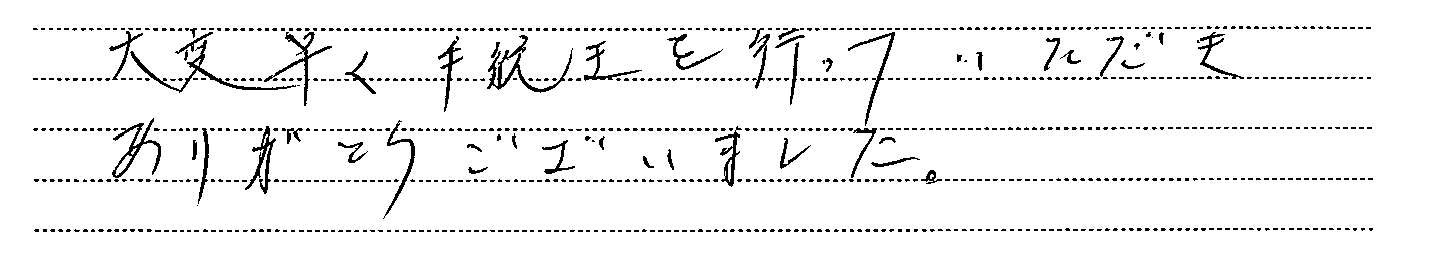 大変早く手続きを行っていただき
ありがとうございました。